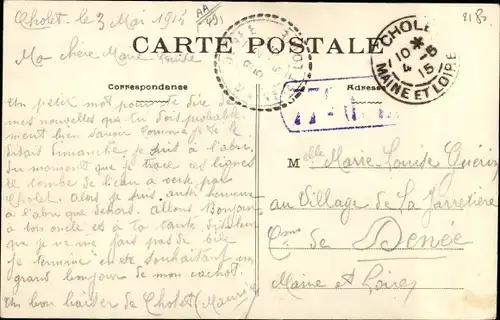 Cholet, le 3 Mai 1915
AA
491
2180
CARTE POSTALE
Correspondance
Adresse
CHOLET
10 *
4 - 5
15
MAINE ET LOIRE
Ma chère Marie Louise
Un petit mot pour te dire de
mes nouvelles que tu dois probable-
ment bien savoir comme je te le
disais Dimanche je suis à l'abri.
Du moment que je trace ces lignes
il tombe de l'eau à verse par
Cholet. Alors je suis aussi heureux
à l'abri que dehors. Allons Bonjour
à ton oncle et à ta tante, dis leur
que je ne me fais pas de bile
je termine en te souhaitant un
grand bonjour de mon cachot.
Un bon baiser de Cholet Maurice
Melle Marie Louise Guérin
au Village de La Jarretière
Cne de Denée
Maine et Loire